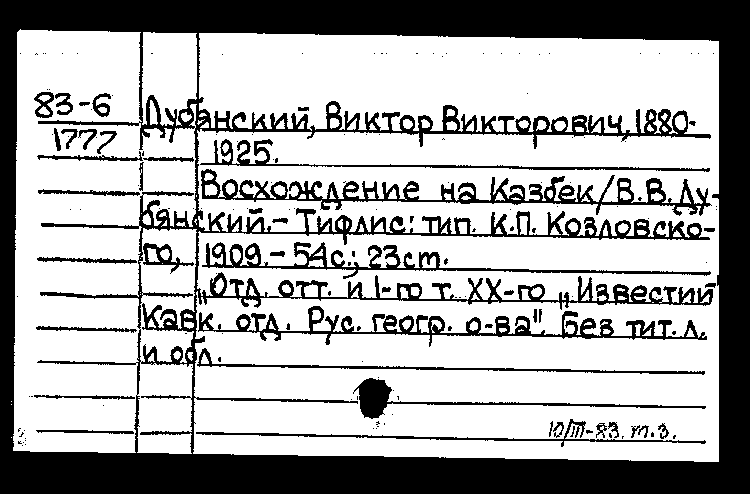 83-6 Дубянский, Виктор Викторович, 1880-
1777 1925.
Восхождение на Казбек/В.В.Ду-
бянский.- Тифлис: тип. К.П. Козловско-
го, 1909.- 54с.; 23ст.
„Отд. отт. и I-го т. XX-го „Известий
Кавк. отд. Рус. геогр. о-ва". Без тит. л.
и обл.
10/III-83. т.з.